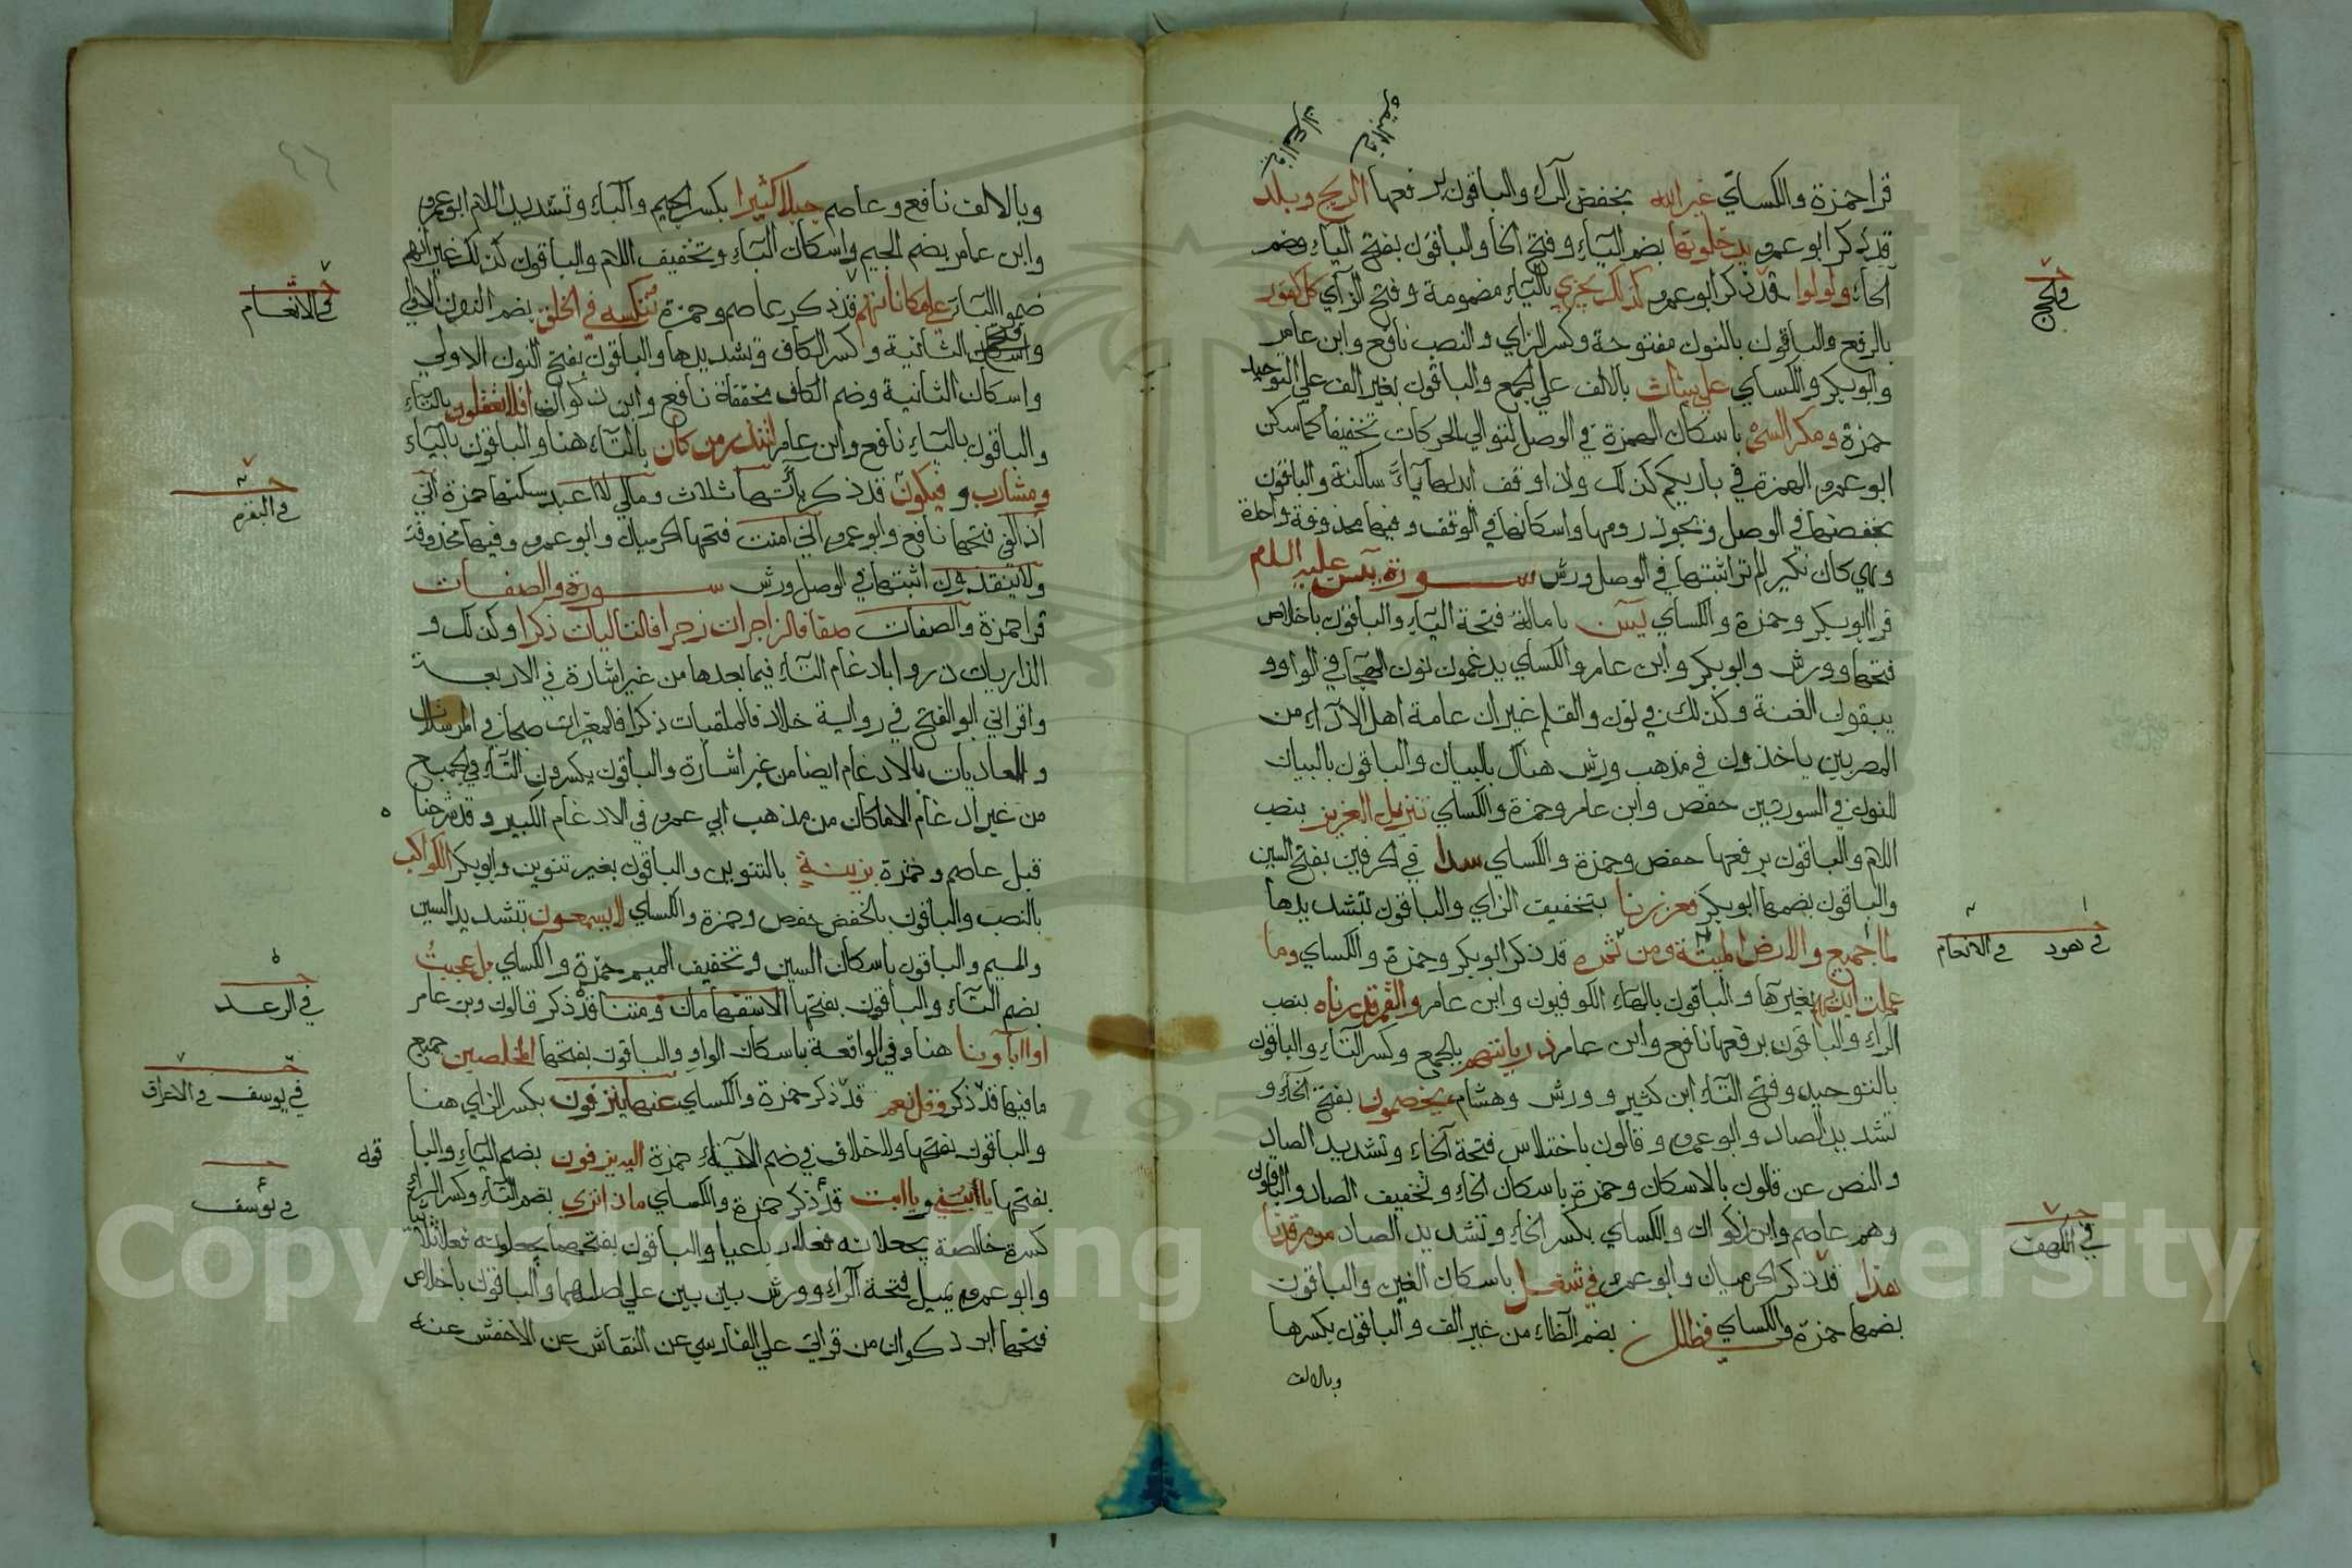 في البقرة
في البقرة
قرا حمزة والكسائي غير الله بخفض الراء والباقون برفعها الريح وبلد
قد ذكر ابو عمرو يدخلونها بضم الياء وفتح الخا والباقون بفتح الياء وضم
الخاء ولولوا قد ذكر ابو عمرو كذلك يجزي بالياء مضمومة وفتح الزاي كل كفور
بالرفع والباقون بالنون مفتوحة وكسر الزاي والنصب نافع وابن عامر
وابو بكر والكساي على بينات بالالف على الجمع والباقون بغير الف على التوحيد
حمزة ومكر السيئ باسكان الهمزة في الوصل لتوالي الحركات تخفيفا كما سكن
ابو عمرو الهمزة في بارئكم كذلك واذا وقف ابدلها ياء ساكنة والباقون
بخفضها في الوصل ويجوز رومها واسكانها في الوقف وفيها محذوفة واحدة
وهي كان نكير الم تر اثبتها في الوصل ورش سورة يس عليه السلام
قرا ابو بكر وحمزة والكساي يس بامالة فتحة الياء والباقون باخلاص
فتحها وورش وابو بكر وابن عامر والكساي يدغمون نون الهجا في الواو و
يبقون الغنة وكذلك في نون والقلم غير ان عامة اهل الاداء من
المصريين ياخذون في مذهب ورش هناك بالبيان والباقون بالبيان
للنون في السورتين حفص وابن عامر وحمزة والكساي تنزيل العزيز بنصب
اللام والباقون برفعها حفص وحمزة والكساي سدا في الحرفين بفتح السين
والباقون بضمها ابو بكر فعززنا بتخفيف الزاي والباقون بتشديدها
لما جميع والارض الميتة ومن ثمره قد ذكر ابو بكر وحمزة والكساي وما
عملت ايديهم بغير ها والباقون بالهاء الكوفيون وابن عامر والقمر قدرناه بنصب
الراء والباقون برفعها نافع وابن عامر ذرياتهم بالجمع وكسر التاء والباقون
بالتوحيد وفتح التاء ابن كثير وورش وهشام يخصمون بفتح الخاء و
تشديد الصاد وابو عمرو وقالون باختلاس فتحة الخاء وتشديد الصاد
والنص عن قالون بالاسكان وحمزة باسكان الخاء وتخفيف الصاد والباقون
وهم عاصم وابن ذكوان والكساي بكسر الخاء وتشديد الصاد من مرقدنا
هذا قد ذكر الحرميان وابو عمرو في شغل باسكان الغين والباقون
بضمها حمزة والكساي في ظلل بضم الظاء من غير الف والباقون بكسرها
وبالالف
في الحج
في هود في الانعام
في الكهف
وبالالف نافع وعاصم جبلا كثيرا بكسر الجيم والباء وتشديد اللام ابو عمرو
وابن عامر بضم الجيم واسكان الباء وتخفيف اللام والباقون كذلك غير انهم
ضموا الباء على مكاناتهم قد ذكر عاصم وحمزة ننكسه في الخلق بضم النون الاولى
وفتح الثانية وكسر الكاف وتشديدها والباقون بفتح النون الاولى
واسكان الثانية وضم الكاف مخففة نافع وابن ذكوان افلا تعقلون بالتاء
والباقون بالياء نافع وابن عامر لتنذر من كان بالتاء هنا والباقون بالياء
ومشارب وفيكون قد ذكر ياتها ثلاث ومالي لا اعبد سكنها حمزة اني
اذا لفي فتحها نافع وابو عمرو اني امنت فتحها الحرميان وابو عمرو وفيها محذوفة
ولا ينقذون اثبتها في الوصل ورش سورة والصفات
قرا حمزة والصفات صفا فالزاجرات زجرا فالتاليات ذكرا وكذلك و
الذاريات ذروا بادغام التاء فيما بعدها من غير اشارة في الاربعة
واقراني ابو الفتح في رواية خلاد فالملقيات ذكرا فالمغيرات صبحا في المرسلات
والعاديات بالادغام ايضا من غير اشارة والباقون يكسرون التاء في الجميع
من غير ادغام الا ما كان من مذهب ابي عمرو في الادغام الكبير وقد شرحنا ه
قبل عاصم وحمزة بزينة بالتنوين والباقون بغير تنوين وابو بكر الكواكب
بالنصب والباقون بالخفض حفص وحمزة والكساي لا يسمعون بتشديد السين
والميم والباقون باسكان السين وتخفيف الميم حمزة والكساي بل عجبت
بضم التاء والباقون بفتحها الاستفهامان ومتنا قد ذكر قالون وبن عامر
او اباونا هنا وفي الواقعة باسكان الواو والباقون بفتحها المخلصين جميع
ما فيها قد ذكر وقل نعم قد ذكر حمزة والكساي عنها ينزفون بكسر الزاي هنا
والباقون بفتحها ولا خلاف في ضم الياء حمزة اليه يزفون بضم الياء والبا
قون
بفتحها يا بني ويا ابت قد ذكر حمزة والكساي ماذا تري بضم التاء وكسر الراء
كسرة خالصة يجعلانه فعلا رباعيا والباقون بفتحهما يجعلونه فعلا ثلاثيا
وابو عمرو يميل فتحة الراء وورش بين بين على اصلهما والباقون باخلاص
فتحها ابن ذكوان من قراتي علي الفارسي عن النقاش عن الاخفش عنه
في الانعام
في البقرة
في الرعد
في يوسف في الاعراف
في يوسف
Copyright © King Saud University
195